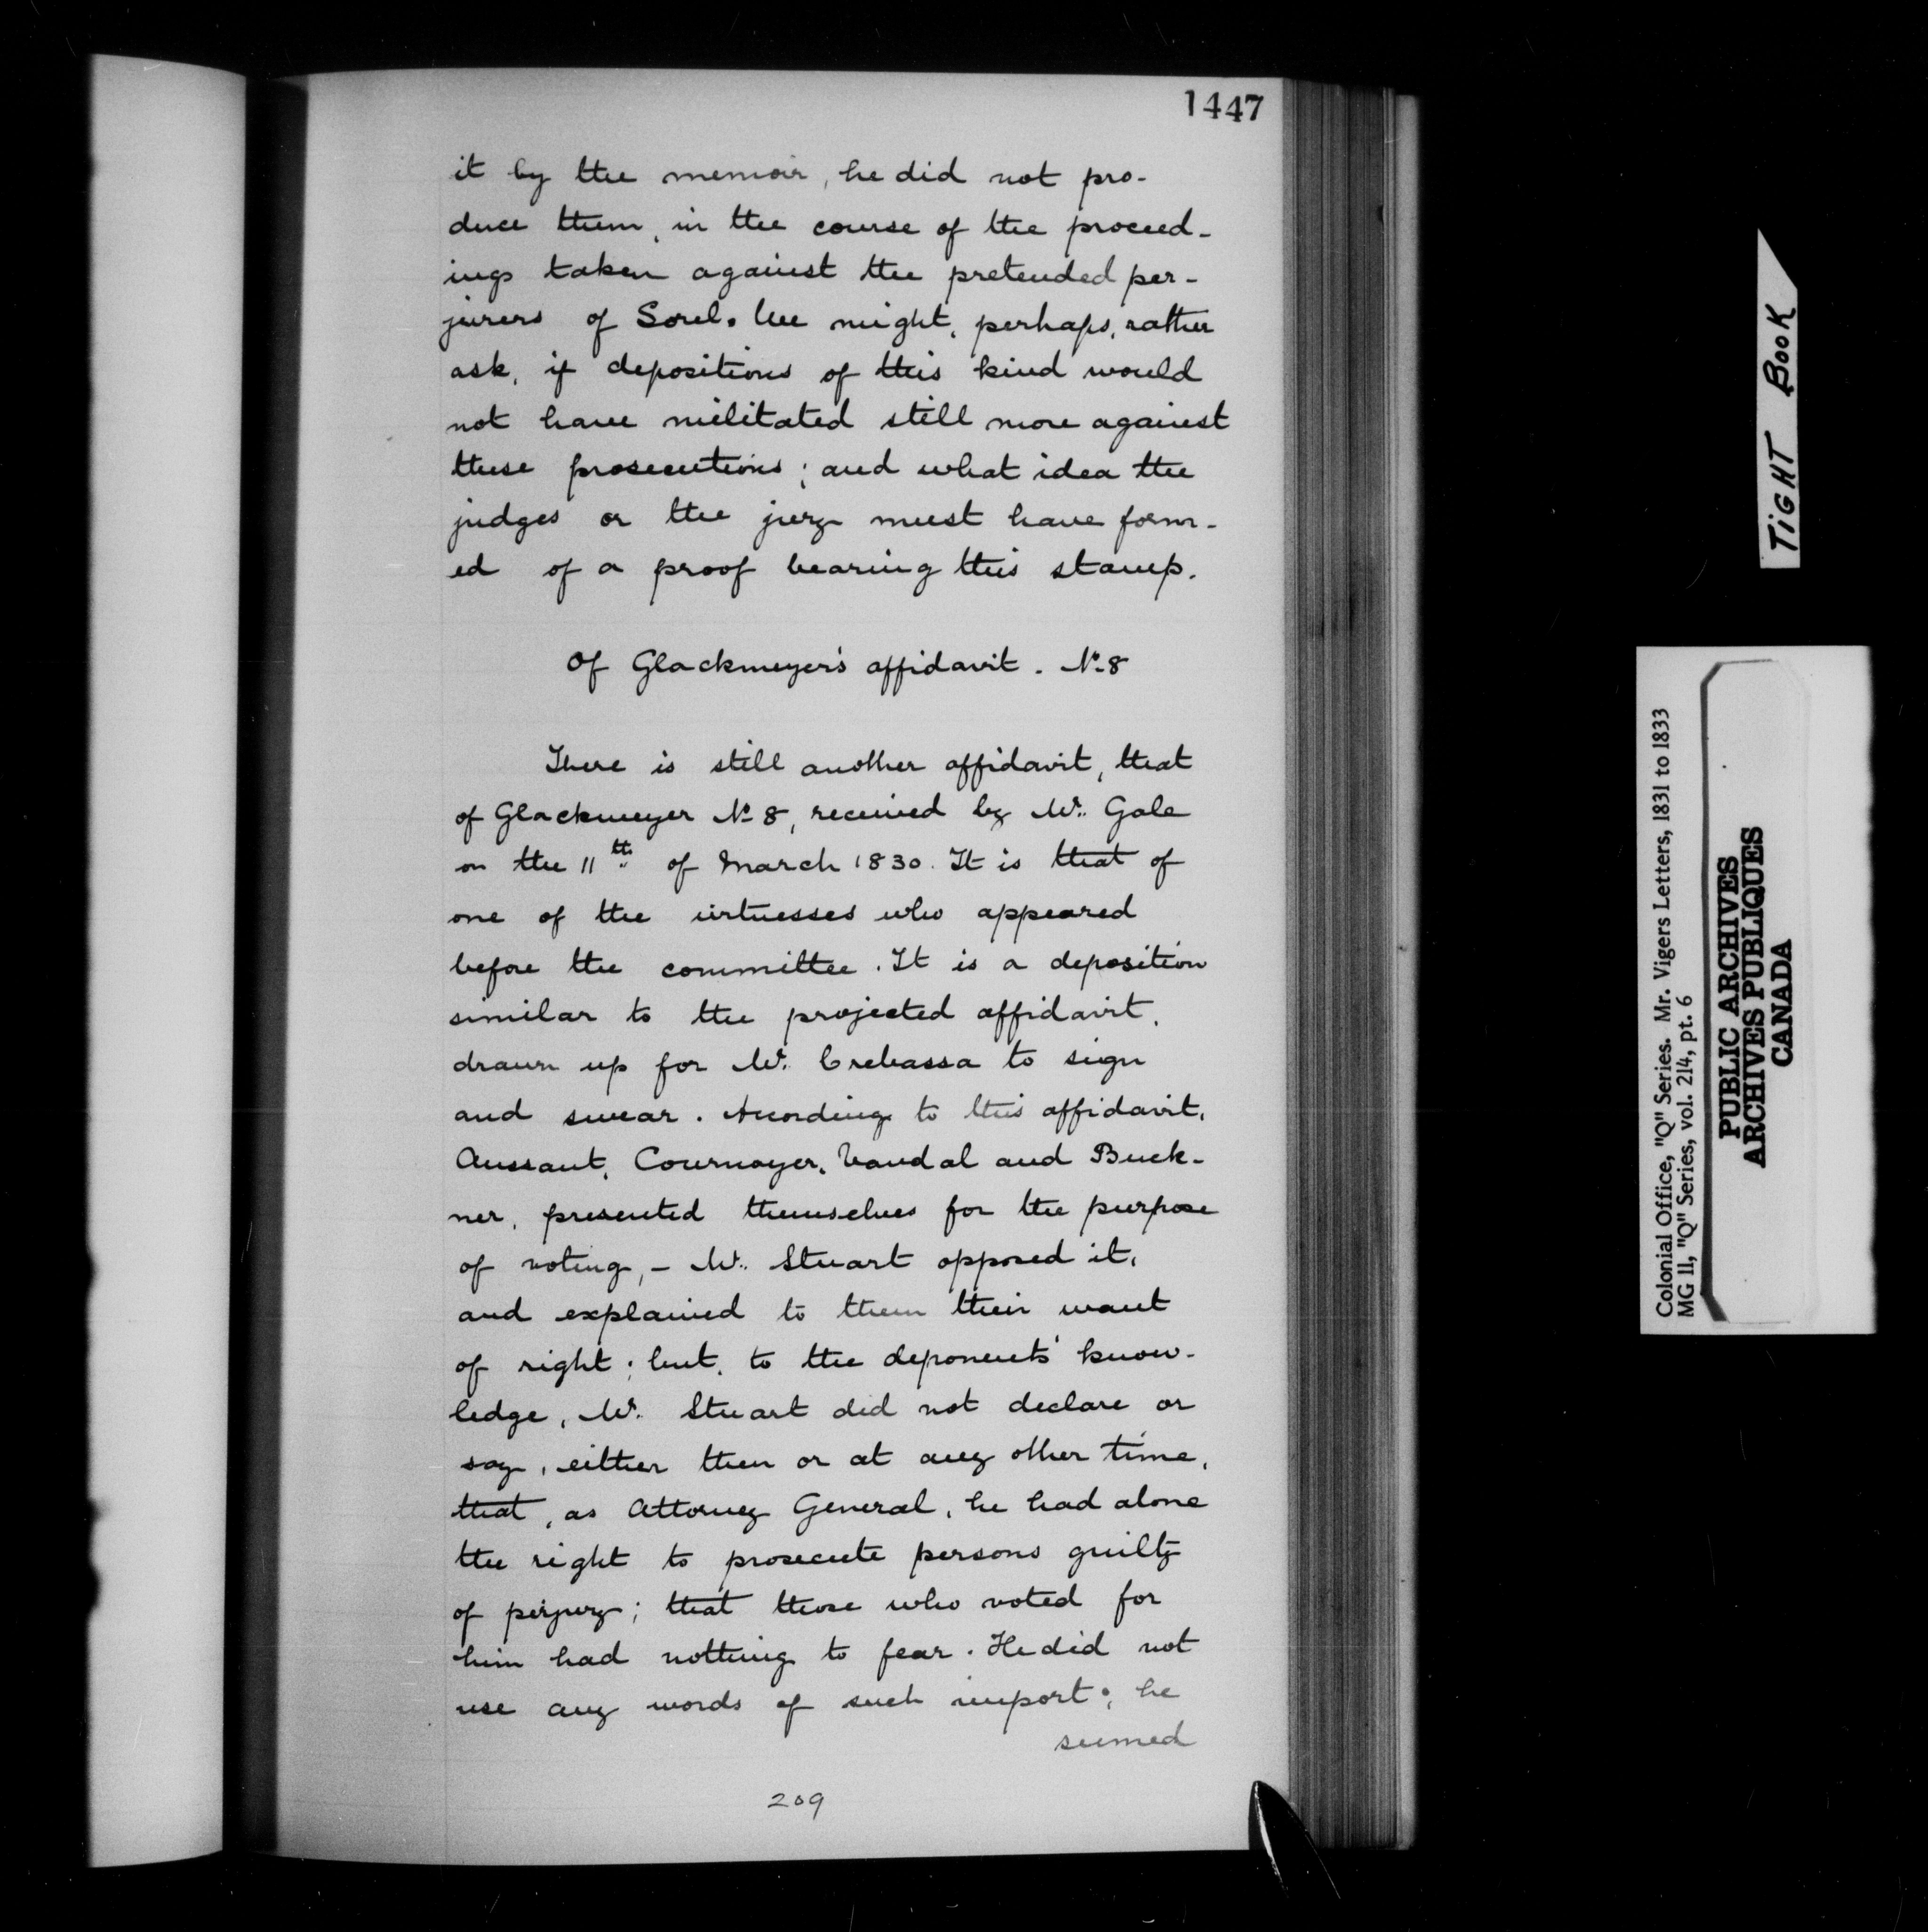 1447
it by the memoir, he did not pro-
duce them, in the course of the proceed-
ings taken against the pretended per-
jurers of Sorel. We might, perhaps, rather
ask, if depositions of this kind would
not have militated still more against
these prosecutions; and what idea the
judges or the jury must have form-
ed of a proof bearing this stamp.
Of Glackmeyer's affidavit. No. 8
There is still another affidavit, that
of Glackmeyer No. 8, received by Mr. Gale
on the 11th of March 1830. It is that of
one of the witnesses who appeared
before the committee. It is a deposition
similar to the projected affidavit,
drawn up for Mr. Crebassa to sign
and swear. According to this affidavit,
Aussant, Cournoyer, Vandal and Buck-
ner, presented themselves for the purpose
of voting, - Mr. Stuart opposed it,
and explained to them their want
of right; but, to the deponents' know-
ledge, Mr. Stuart did not declare or
say, either then or at any other time,
that, as Attorney General, he had alone
the right to prosecute persons guilty
of perjury; that those who voted for
him had nothing to fear. He did not
use any words of such import; he
seemed
209
TIGHT BOOK
Colonial Office, "Q" Series. Mr. Vigers Letters, 1831 to 1833
MG 11, "Q" Series, vol. 214, pt. 6
PUBLIC ARCHIVES
ARCHIVES PUBLIQUES
CANADA